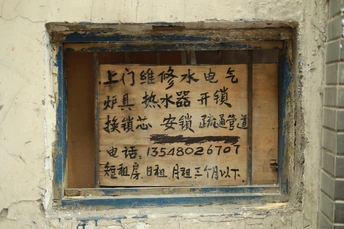 上门维修水电气
炉具 热水器 开锁
换锁芯 安锁 疏通管道
电话，13548026707
短租房，日租，月租三个月以下